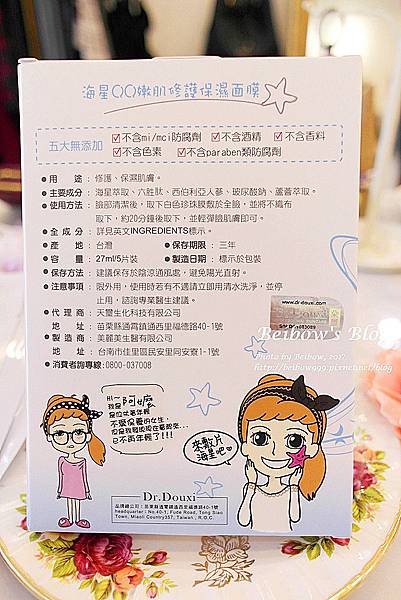 海星QQ嫩肌修護保濕面膜
五大無添加
☑不含mi/mci防腐劑 ☑不含酒精 ☑不含香料
☑不含色素 ☑不含paraben類防腐劑
●用途：修護、保濕肌膚。
●主要成分：海星萃取、六胜肽、西伯利亞人蔘、玻尿酸鈉、蘆薈萃取。
●使用方法：臉部清潔後，取下白色珍珠膜敷於全臉，並將不織布
取下，約20分鐘後取下，並輕彈臉肌膚即可。
●全成分：詳見英文INGREDIENTS標示。
●產地：台灣 ●保存期限：三年
●容量：27ml/5片裝 ●製造日期：標示於包裝
●保存方法：建議保存於陰涼通風處，避免陽光直射。
●注意事項：限外用，使用時若有不適請立即用清水洗淨，並停
止用，諮詢專業醫生建議。
●代理商：天璽生化科技有限公司
地址：苗栗縣通霄鎮通西里福德路40-1號
●製造商：美麗美生醫有限公司
地址：台南市佳里區民安里同安寮1-1號
●消費者諮詢專線:0800-037008
www.dr-douxi.com
Beibow's Blog
Photo by Beibow, 2017
http://beibow999.pixnet.net/blog
Hi~
我是阿嬤
是位米年輕
不學保養的女生，
但是我發現現在看起來...
已不再年輕了!!!
來敷片
海星吧♥
Dr.Douxi
品牌總公司：苗栗縣通霄鎮通西里福德路40-1號
headquarter：No.40-1, Fude Road, Tong Siao
Town, Miaoli Country357, Taiwan , R.O.C.